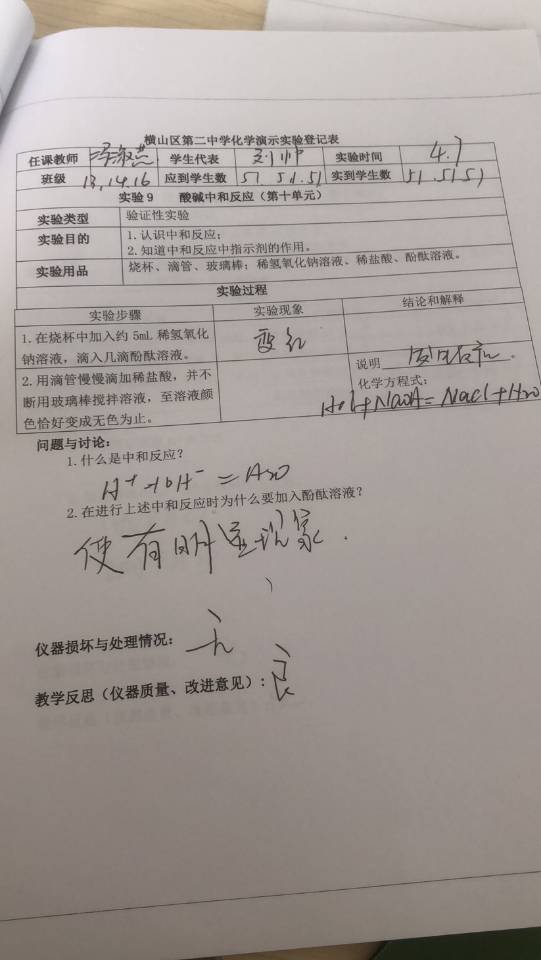 横山区第二中学化学演示实验登记表
任课教师 学生代表 刘帅 实验时间 4.7
班级 13,14.16 应到学生数 51. 51.51 实到学生数 51.51 51
实验9 酸碱中和反应（第十单元）
实验类型 验证性实验
实验目的 1.认识中和反应；
2.知道中和反应中指示剂的作用。
实验用品 烧杯、滴管、玻璃棒；稀氢氧化钠溶液、稀盐酸、酚酞溶液。
实验过程
实验步骤 实验现象 结论和解释
1.在烧杯中加入约 5mL 稀氢氧化
钠溶液，滴入几滴酚酞溶液。
变红
2.用滴管慢慢滴加稀盐酸，并不
断用玻璃棒搅拌溶液，至溶液颜
色恰好变成无色为止。
说明
化学方程式：
HCl+NaOH=NaCl+H2O
问题与讨论：
1.什么是中和反应？
H+ +OH- =H2O
2.在进行上述中和反应时为什么要加入酚酞溶液？
使有明显现象.
仪器损坏与处理情况：
教学反思（仪器质量、改进意见）：良